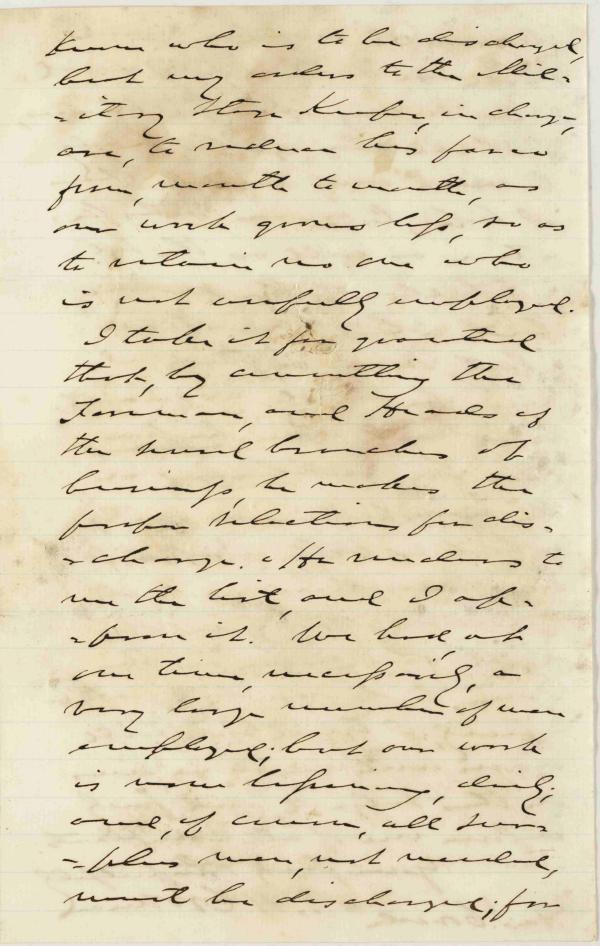 know who is to be discharged,
but my orders to the Mil-
-itary Store Keeper, in charge,
are, to reduce his force
from, month to month, as
our work grows less, so as
to retain no one who
is not usefully employed.
I take it for granted
that, by consulting the
Foreman, and Heads of
the several branches of
business, he makes the
proper selections for dis-
-charge. He renders to
me the list, and I ap-
-prove it. We had, at
one time, necessarily, a
very large number of men
employed; but our work
is now lessening, daily;
and, of course, all sur-
-plus men, not needed,
must be discharged; for